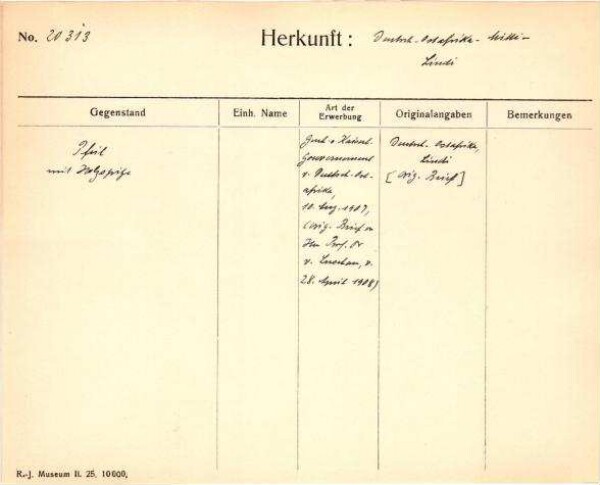 No. 20313
Herkunft: Deutsch-Ostafrika-
Lindi
Gegenstand Einh. Name Art der Erwerbung Originalangaben Bemerkungen
Pfeil
mit Holzspitze
Gesch. v. Kaiserl.
Gouvernement
v. Deutsch-Ost-
afrika,
10. Aug. 1907,
(orig. Brief v.
Hrn Prof. Dr
v. Luschan, v.
28. April 1908)
Deutsch-Ostafrika,
Lindi
[orig. Brief]
R.-J. Museum B. 25. 10000.